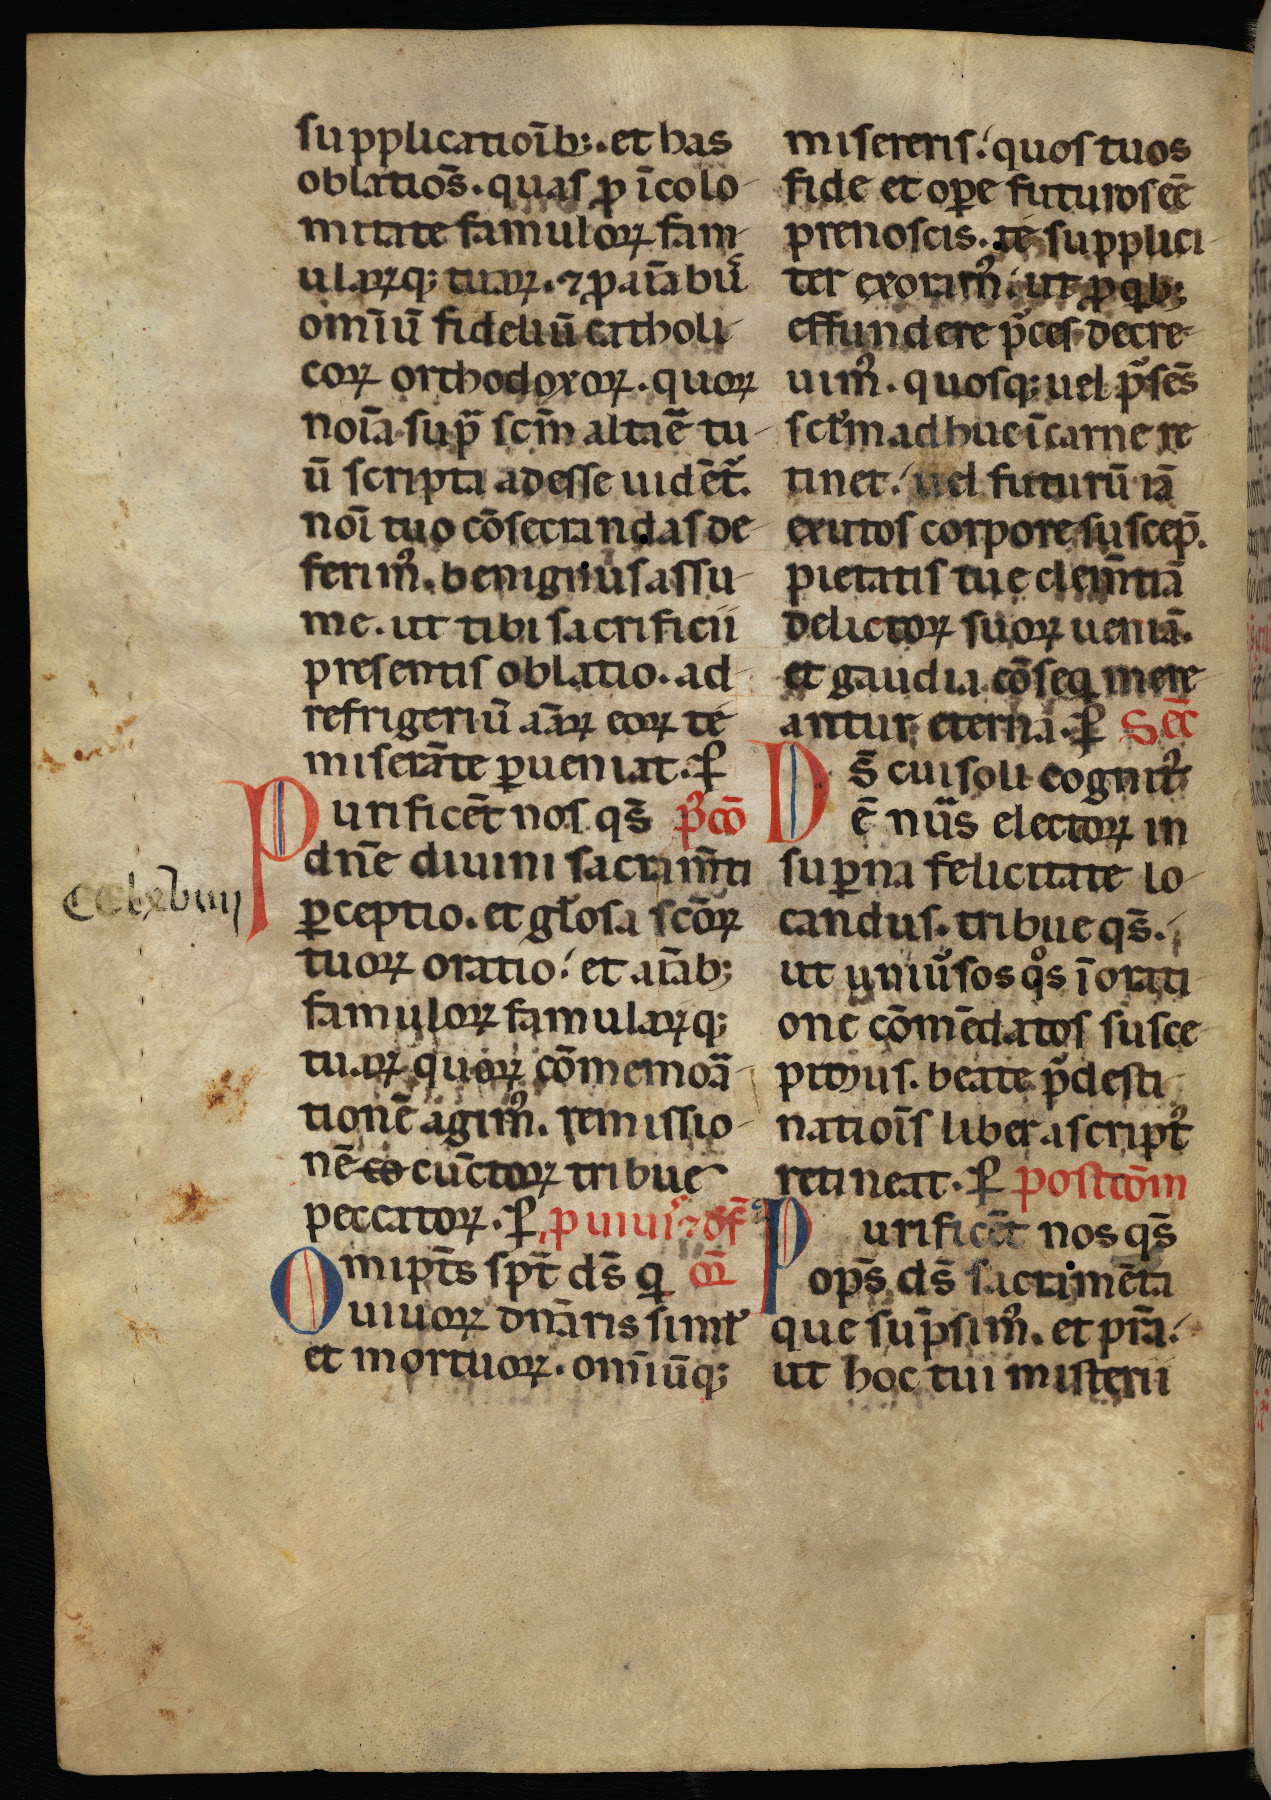 supplicatioīb;. et has
oblatiōs. quas ꝓ īcolo-
mitate famuloꝝ fam-
ulaꝝq; tuaꝝ. ⁊ ꝓ aīabꝰ
omīū fideliū catholi-
coꝝ orthodoxoꝝ. quoꝝ
noīa sup̄ scm̄ altaē tu-
ū scripta adesse uidēt᷑.
noī tuo cōsecrandas de-
ferimꝰ. benignus assu-
me. ut tibi sacrificii
presentis oblatio. ad-
refrigeriū aīaꝝ eoꝝ te
miserāte ꝑueniat. ꝑ
Purificēt nos qs̄ p̄cō
dn̄e diuini sacram̄ti
CClxviiij
ꝑceptio. et gl̄osa scōꝝ
tuoꝝ oratio. et aīab;
famuloꝝ famulaꝝq;
tuaꝝ quoꝝ cōmemoā-
tionē agimꝰ. remissio-
nē co cūctoꝝ tribue
peccatoꝝ. ꝑ p uiuis ⁊ def̄
Omip̄ts sp̄t ds̄ q or̄
uiuoꝝ dn̄aris siml̄
et mortuoꝝ. omīūq;
misereris. quos tuos
fide et oꝑe futuros eē
prenoscis. te supplici-
ter exoramꝰ. ut ꝓ qb;
effundere p̄ces decre-
uimꝰ. quosq; uel p̄sēs
scl̄m adhuc ī carne re
tinet. uel futurū iā
exutos corpore suscep̄.
pietatis tue clem̄tiā
delictoꝝ suoꝝ ueniā.
et gaudia cōseq mere-
antur eterna. ꝑ Sec̄
Ds̄ cui soli cognitꝰ
ē nūs electoꝝ in
suꝑna felicitate lo-
candus. tribue qs̄.
ut uniūsos qͦs ī orati-
one cōmēdatos susce-
pimus. beate p̄desti-
natioīs liber ascriptꝰ
retineat. ꝑ postcōm
Purificēt nos qs̄
op̄s ds̄ sacramēta
que sūpsimꝰ. et p̄ra.
ut hoc tui misterii